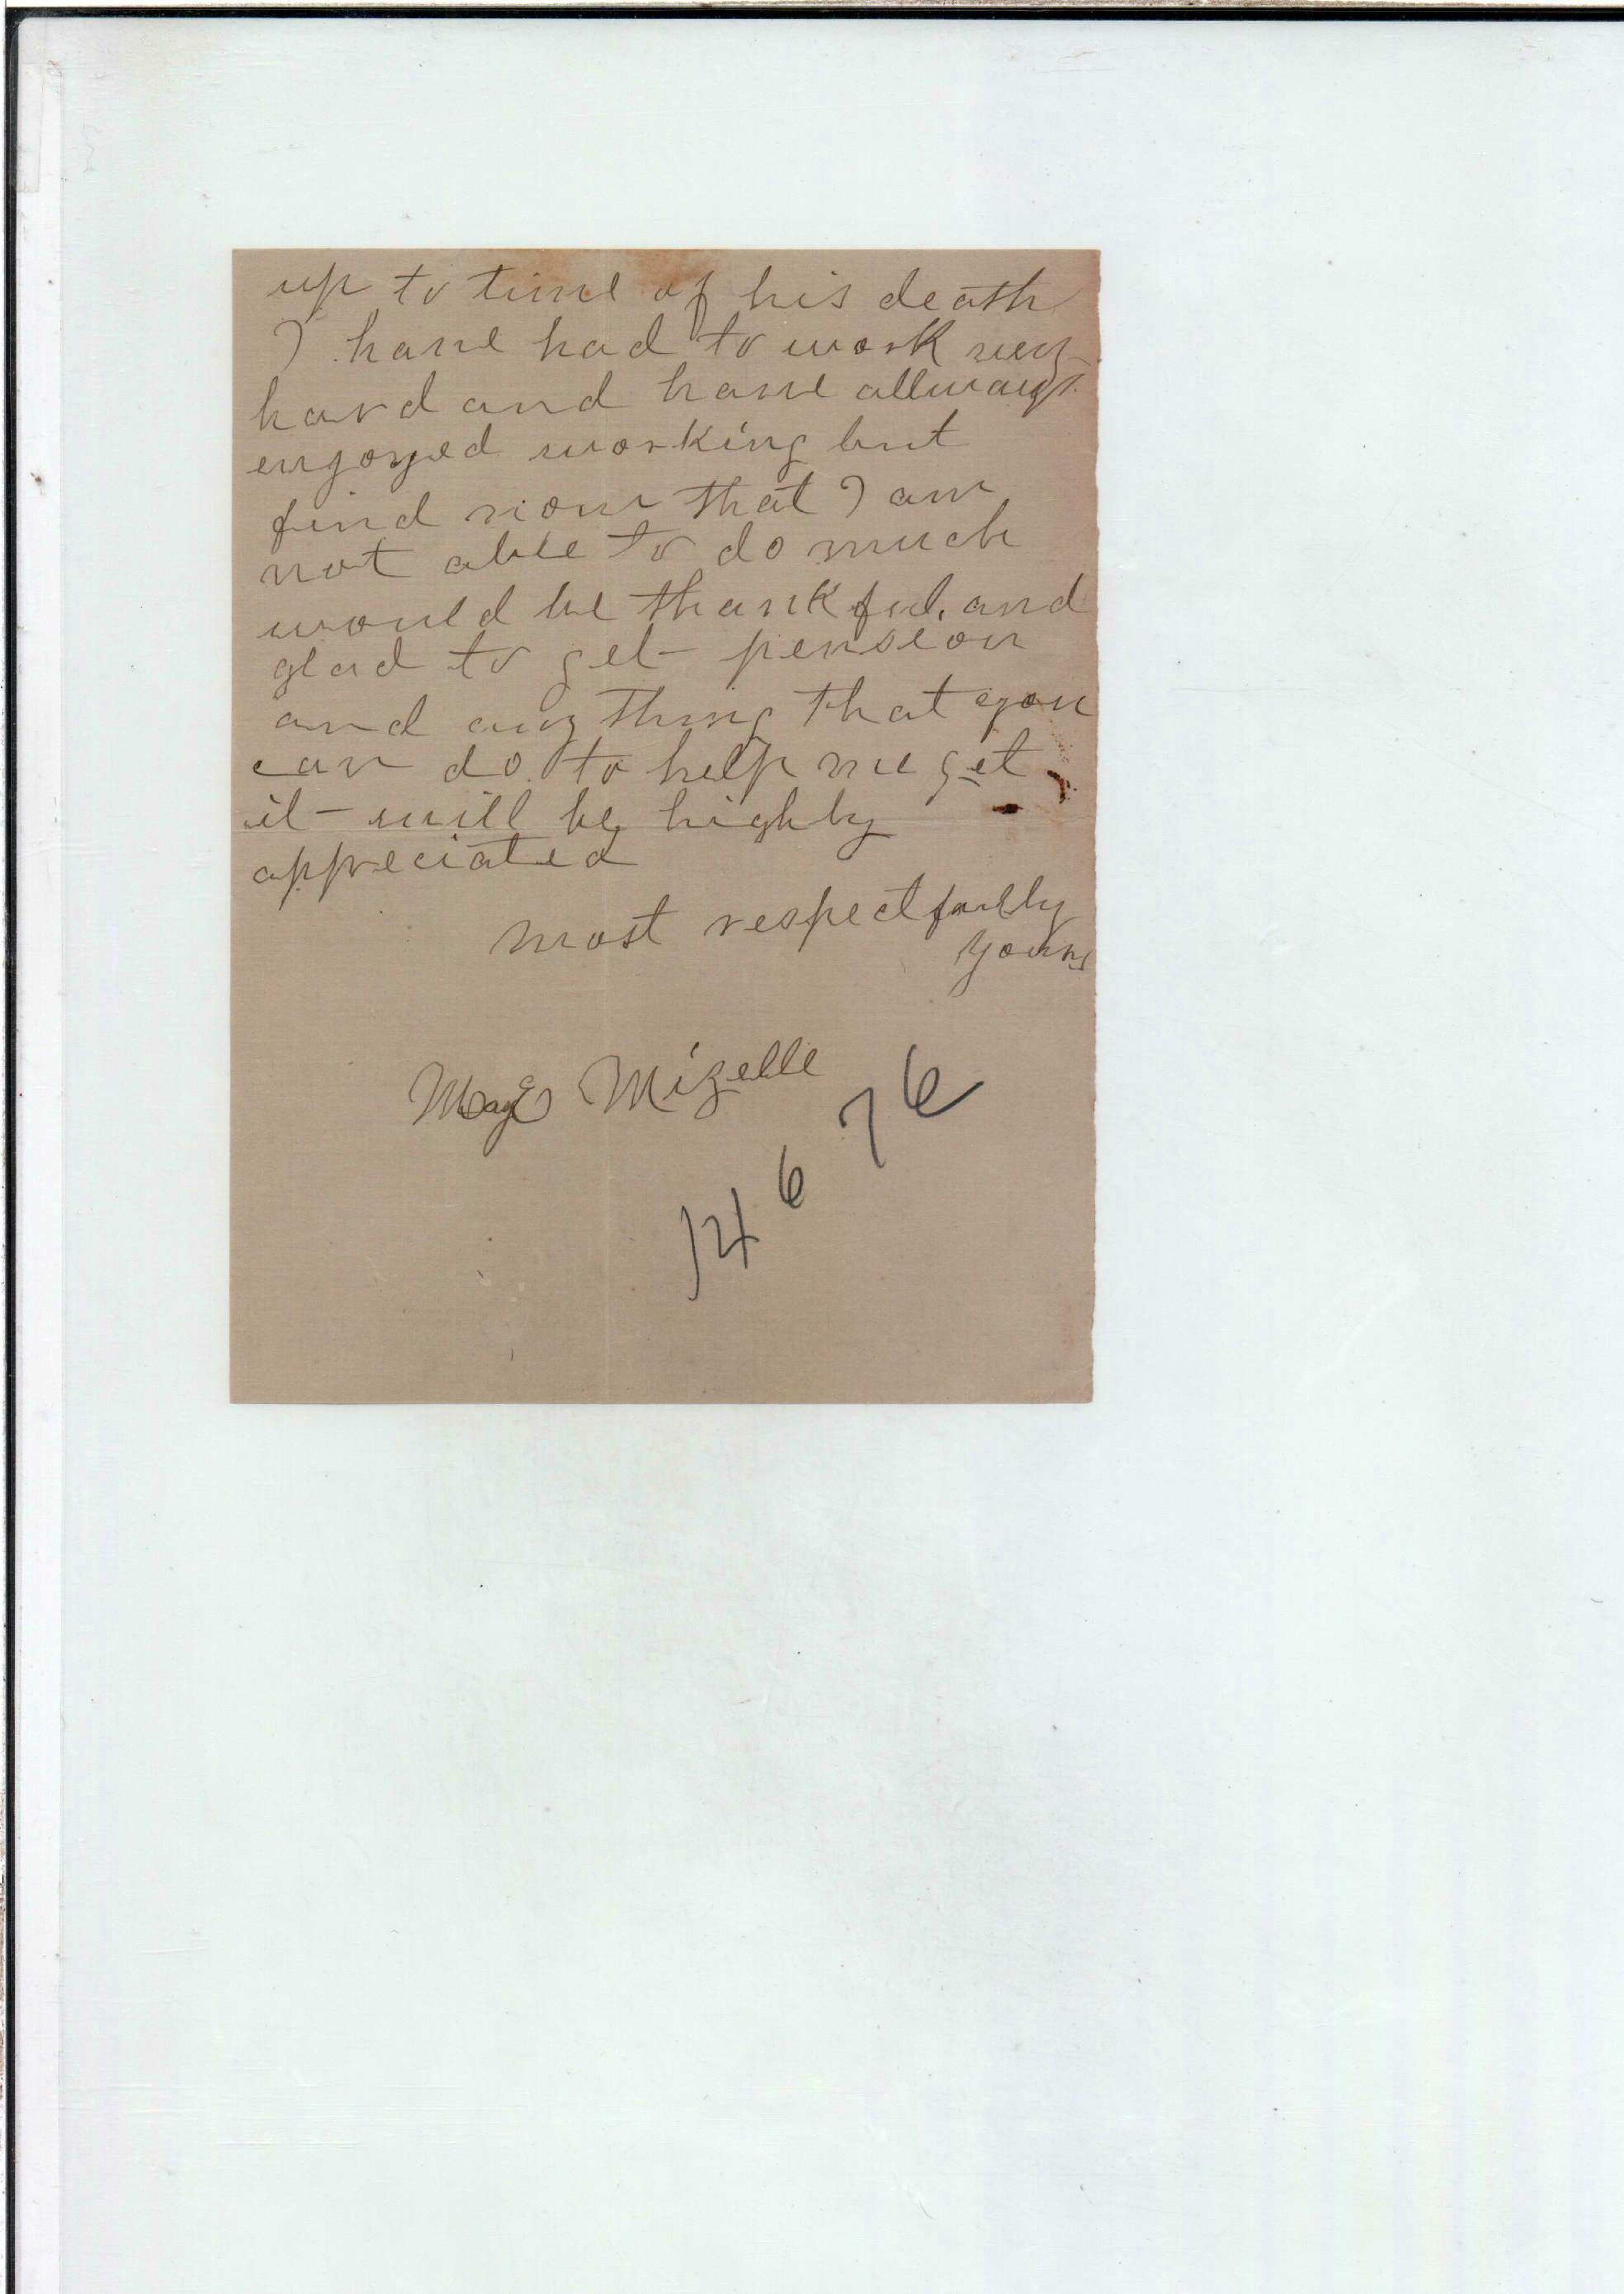 up to time of his death
I have had to work very
hard and have allways
enjoyed working but
find now that I am
not able to do much
would be thankful and
glad to get pension
and any thing that you
can do to help me get
it will be highly
appreciated
most respectfully
yours
Mizelle
14676